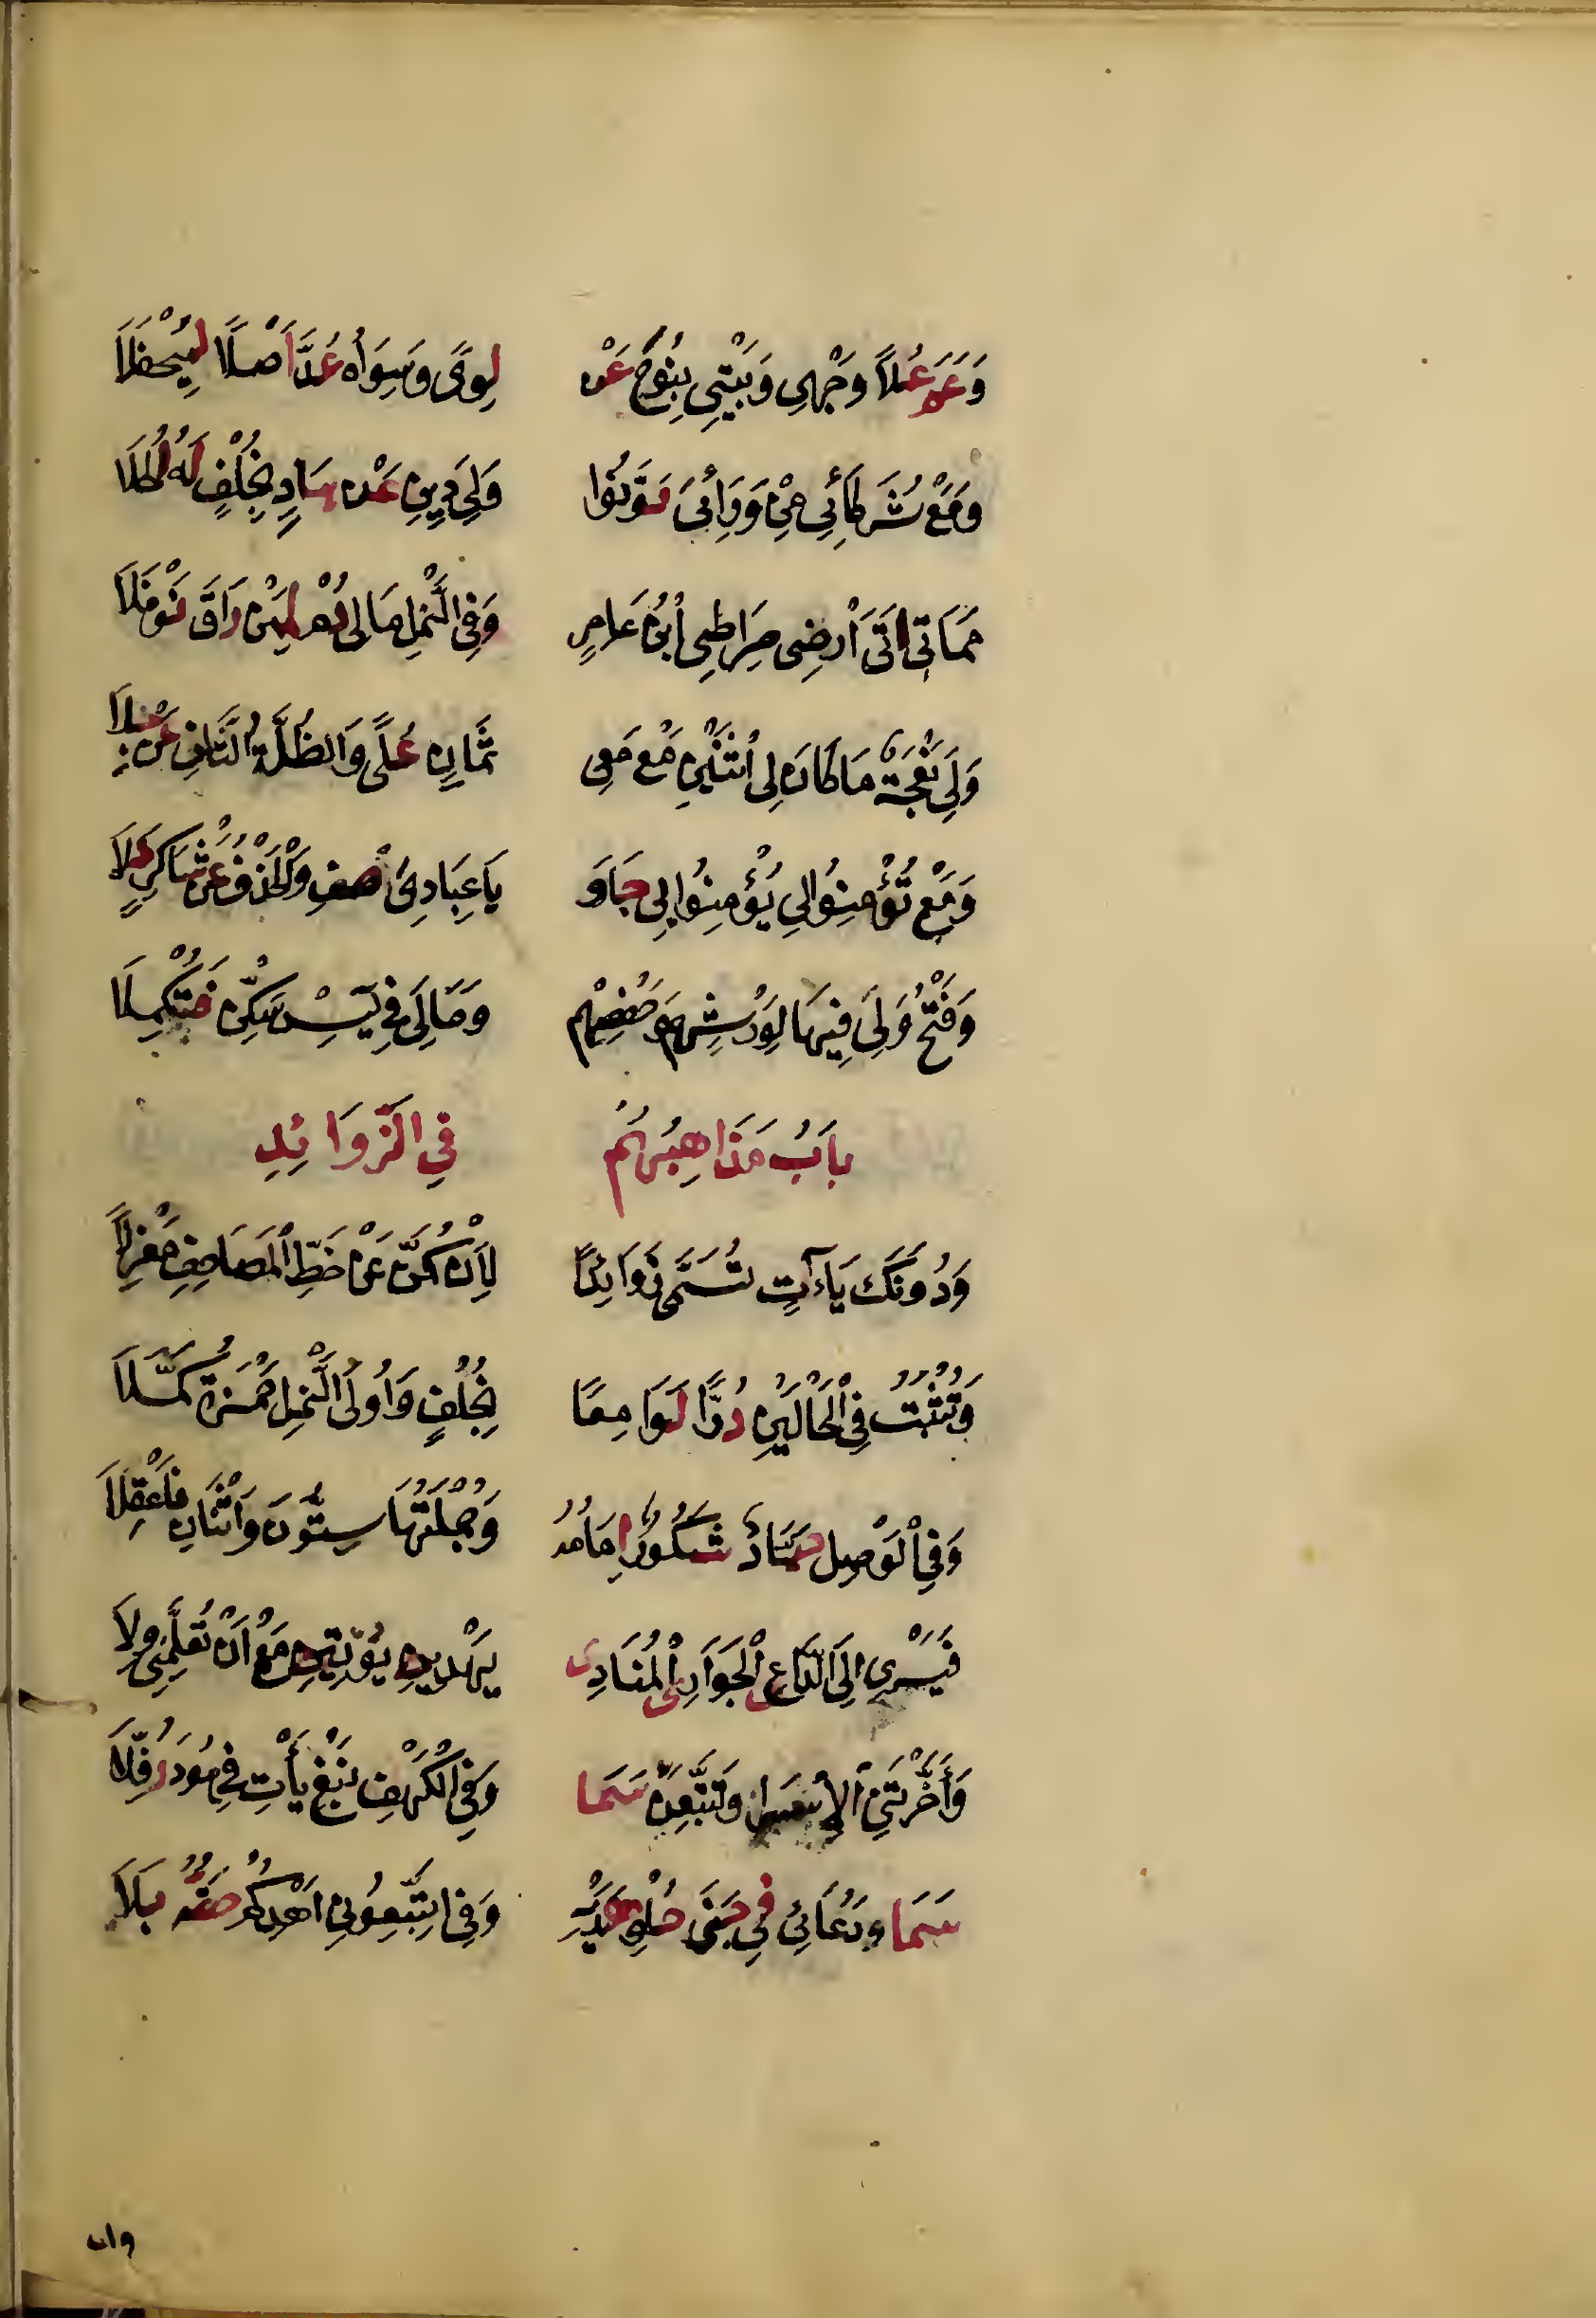 وَعَمَّ عُلاً وَجْهِي وَبَيْتِي بِنُوحَ عَنْ لِوًى وَسِوَاهُ عُدَّ أَصْلًا لِيُحْفَلَا
وَمَعْ شُرَكَائِي مِنْ وَرَائِيَ دَوَّنُوا وَلِيَ دِينِ عَنْ هَادٍ بِخُلْفٍ لَهُ الْحُلَا
مَمَاتِي أَتَى أَرْضِي صِرَاطِي ابْنُ عَامِرٍ وَفِي النَّمْلِ مَالِي دُمْ لِمَنْ رَاقَ نَوْفَلَا
وَلِيَ نَعْجَةٌ مَا كَانَ لِي اثْنَيْنِ مَعْ مَعِي ثَمَانٍ عُلًى وَالظُّلَّةُ الثَّانِ عَنْ جِلَا
وَمَعْ تُؤْمِنُوا لِي يُؤْمِنُوا بِي جَا وَ يَا عِبَادِيَ صِفْ وَالْحَذْفُ عَنْ شَاكِرٍ دَلَا
وَفَتْحُ وَلِيَ فِيهَا لِوَرْشٍ وَحَفْصِهِمْ وَمَالِيَ فِي يَسِ سَكِّنْ فَتَكْمُلَا
بَابُ مَذَاهِبِهُم في الزَّوَائِدِ
وَدُونَكَ يَاءَآتٍ تُسَمَّى زَوَائِدًا لِأَنْ كُنَّ عَنْ خَطِّ الْمَصَاحِفِ مَعْزِلًا
وَتُثْبَتُ فِي الْحَالَيْنِ دُرًّا لَوَامِعًا بِخُلْفٍ وَأُولَى النَّمْلِ حَمْزَةُ كَمَّلَا
وَفِي الْوَصْلِ حَمَّادٌ شَكُورٌ إِمَامُهُ وَجُمْلَتُهَا سِتُّونَ وَاثْنَانِ فَاعْقِلَا
فَيَسْرِي إِلَى الدَّاعِ الْجَوَارِ الْمُنَادِي يَهْدِينِ يُؤْتِيَنْ مَعْ أَنْ تُعَلِّمَنِي وِلَا
وَأَخَّرْتَنِي الْإِسْرَا وَتَتَّبِعَنْ سَمَا وَفِي الْكَهْفِ نَبْغِ يَأْتِ فِي هُودَ رُفِّلَا
سَمَا وَدُعَائِي فِي جَنَى حُلْوِ هَدْيِهِ وَفِي اتَّبِعُونِي اهْدِكُمْ حَقُّهُ بَلَا
وان